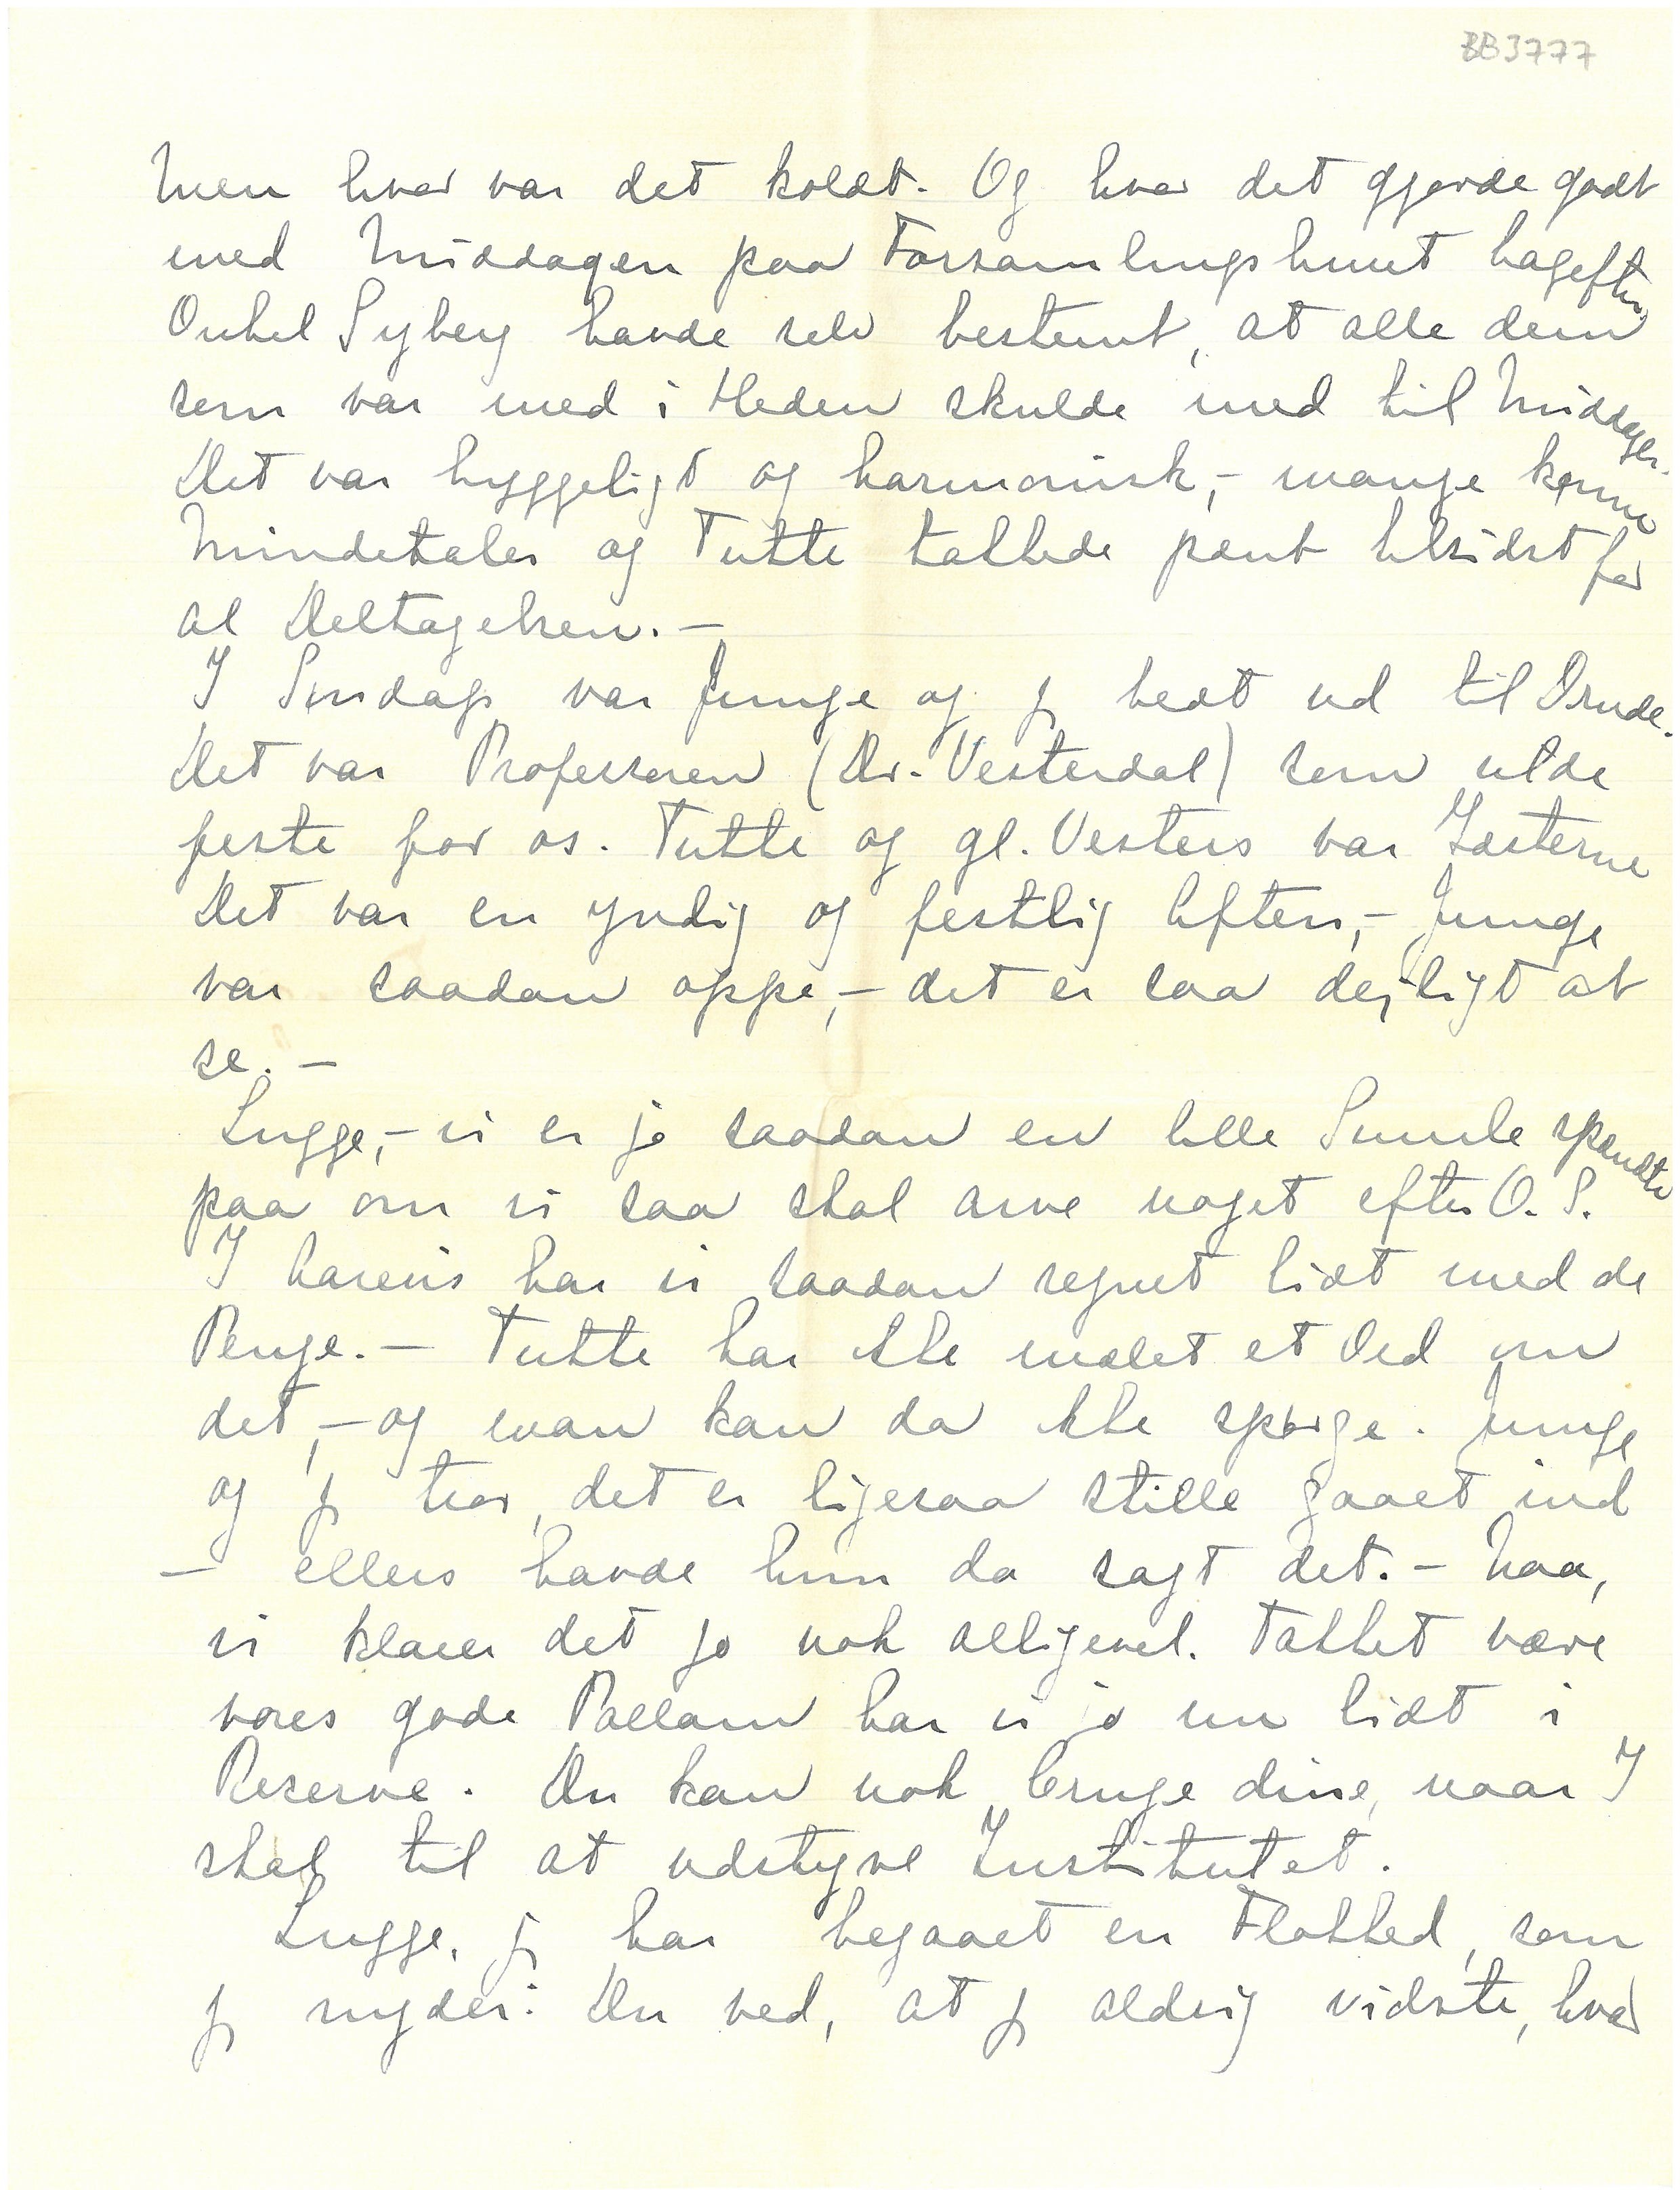 BB3777
Men hvor var det koldt. Og hvor det gjorde godt
med Middagen paa Forsamlingshuset bagefter.
Onkel Syberg havde selv bestemt, at alle dem
som var med i Heden skulde med til Middagen.
Det var hyggeligt og harmonisk, – mange kønne
Mindetaler og Tutte takkede pænt tilsidst for
al Deltagelsen. –
I Søndags var Junge og jeg bedt ud til Drude.
Det var Professoren (Dr. Vesterdal) som vilde
feste for os. Tutte og gl. Vesters var Gæsterne
Det var en yndig og festlig Aften, – Junge
var saadan oppe, – det er saa dejligt at
se. –
Lugge, – vi er jo saadan en lille Smule spændte
paa om vi saa skal arve noget efter O. S.
I har vi saadan regnet lidt med de
Penge. – Tutte har ikke mælet et Ord om
det, – og man kan da ikke spørge. Junge
og jeg tror, det er ligesaa stille gaaet ind
– ellers havde hun da sagt det. – Naa,
vi klarer det jo nok alligevel. Takket være
vores gode Pallam har vi jo nu lidt i
Reserve. Du kan nok bruge dine, naar I
skal til at udstyre Institutet.
Lugge, jeg har begaaet en Flothed, som
jeg nyder: Du ved, at jeg aldrig vidste, hvad